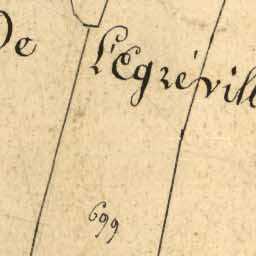 De L'Egrévill
699